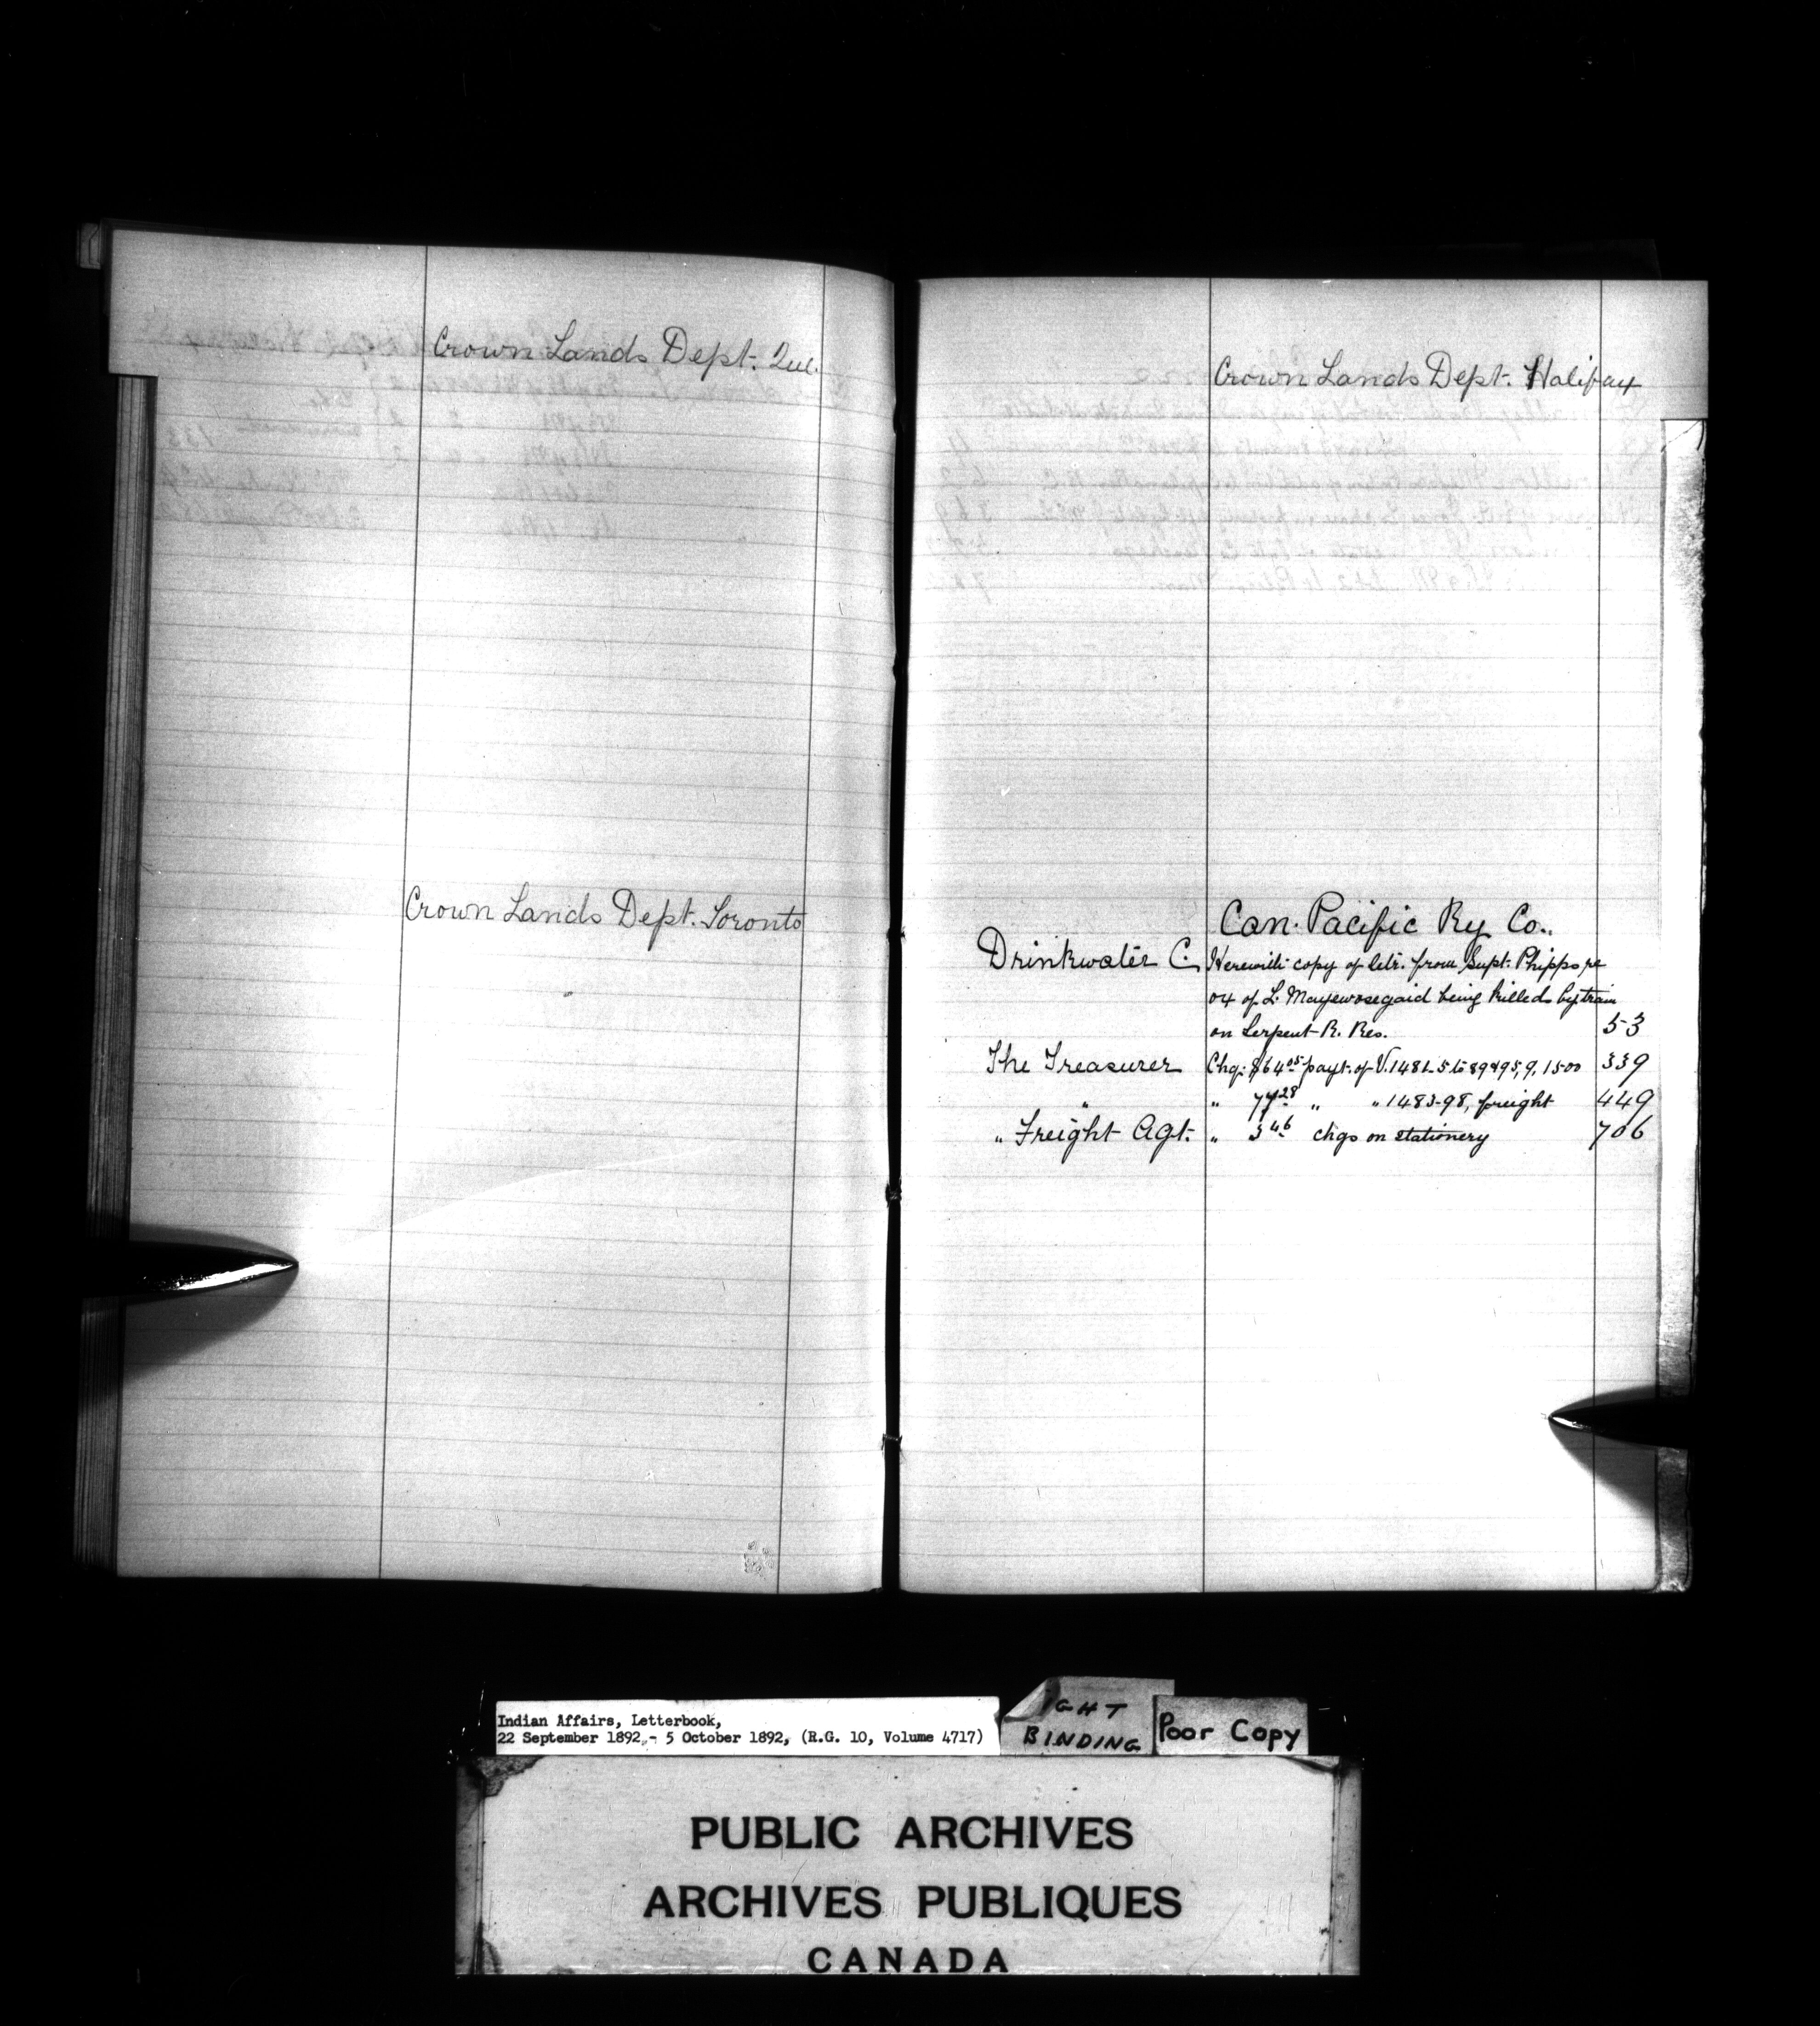 Crown Lands Dept. Que.
Crown Lands Dept. Toronto
Crown Lands Dept. Halifax
Can. Pacific Ry Co.
Drinkwater C. Herewith copy of letr. from Supt. Phipps re
ox of L. Mayewosegaid being killed by train
on Serpent R. Res. 53
The Treasurer Chq: $64 05 payt. of V. 1481-5 to 89 & 95, 9, 1500 339
" " 77 28 " " 1483-98, freight 449
" Freight Agt. " 3 46 chgs on stationery 706
Indian Affairs, Letterbook,
22 September 1892 - 5 October 1892, (R.G. 10, Volume 4717)
IGHT
BINDING
Poor Copy
PUBLIC ARCHIVES
ARCHIVES PUBLIQUES
CANADA